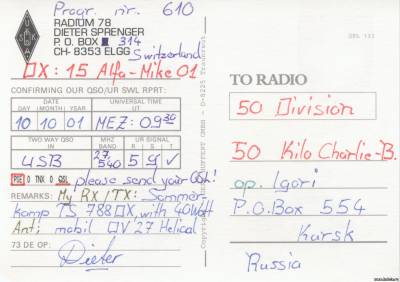 Progr. nr. 610
RADIUM 78
DIETER SPRENGER
P. O. BOX 314
CH- 8353 ELGG
Switzerland
DX: 15 Alfa-Mike 01
CONFIRMING OUR QSO/UR SWL RPRT:
DATE
DAY MONTH YEAR
UNIVERSAL TIME
UT
10 10 01 MEZ: 0930
TWO WAY QSO
IN
MHZ
BAND
UR SIGNAL
R S T
USB 27.540 5 9 ✓
PSE O TNX O QSL please send your QSL!
REMARKS: My Rx/TX: Sommer-
kamp TS 788 DX, with 40 Watt
Ant: mobil DV 27 Helical
73 DE OP: Dieter
QSL 133
TO RADIO
50 Division
50 Kilo Charlie-B.
op. Igori
P.O. Box 554
Kursk
Russia